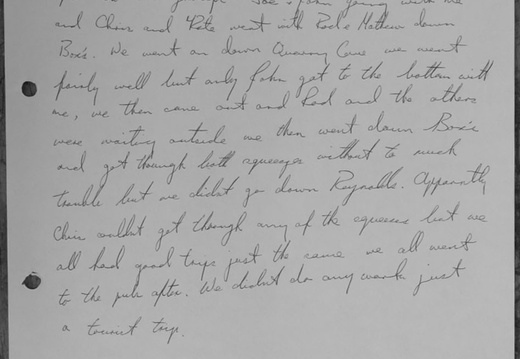 Joe & John going with me
and Chris and Pete went with Rod & Mathew down
Box's. We went on down Quarry Cave we went
fairly well but only John got to the bottom with
me, we then came out and Rod and the others
were waiting outside we then went down Box's
and got through both squeezes without to much
trouble but we didnt go down Raynolds. Apparantly
Chris couldnt get through any of the squeezes but we
all had good trips just the same we all went
to the pub after. We didn't do any work just
a tourist trip.